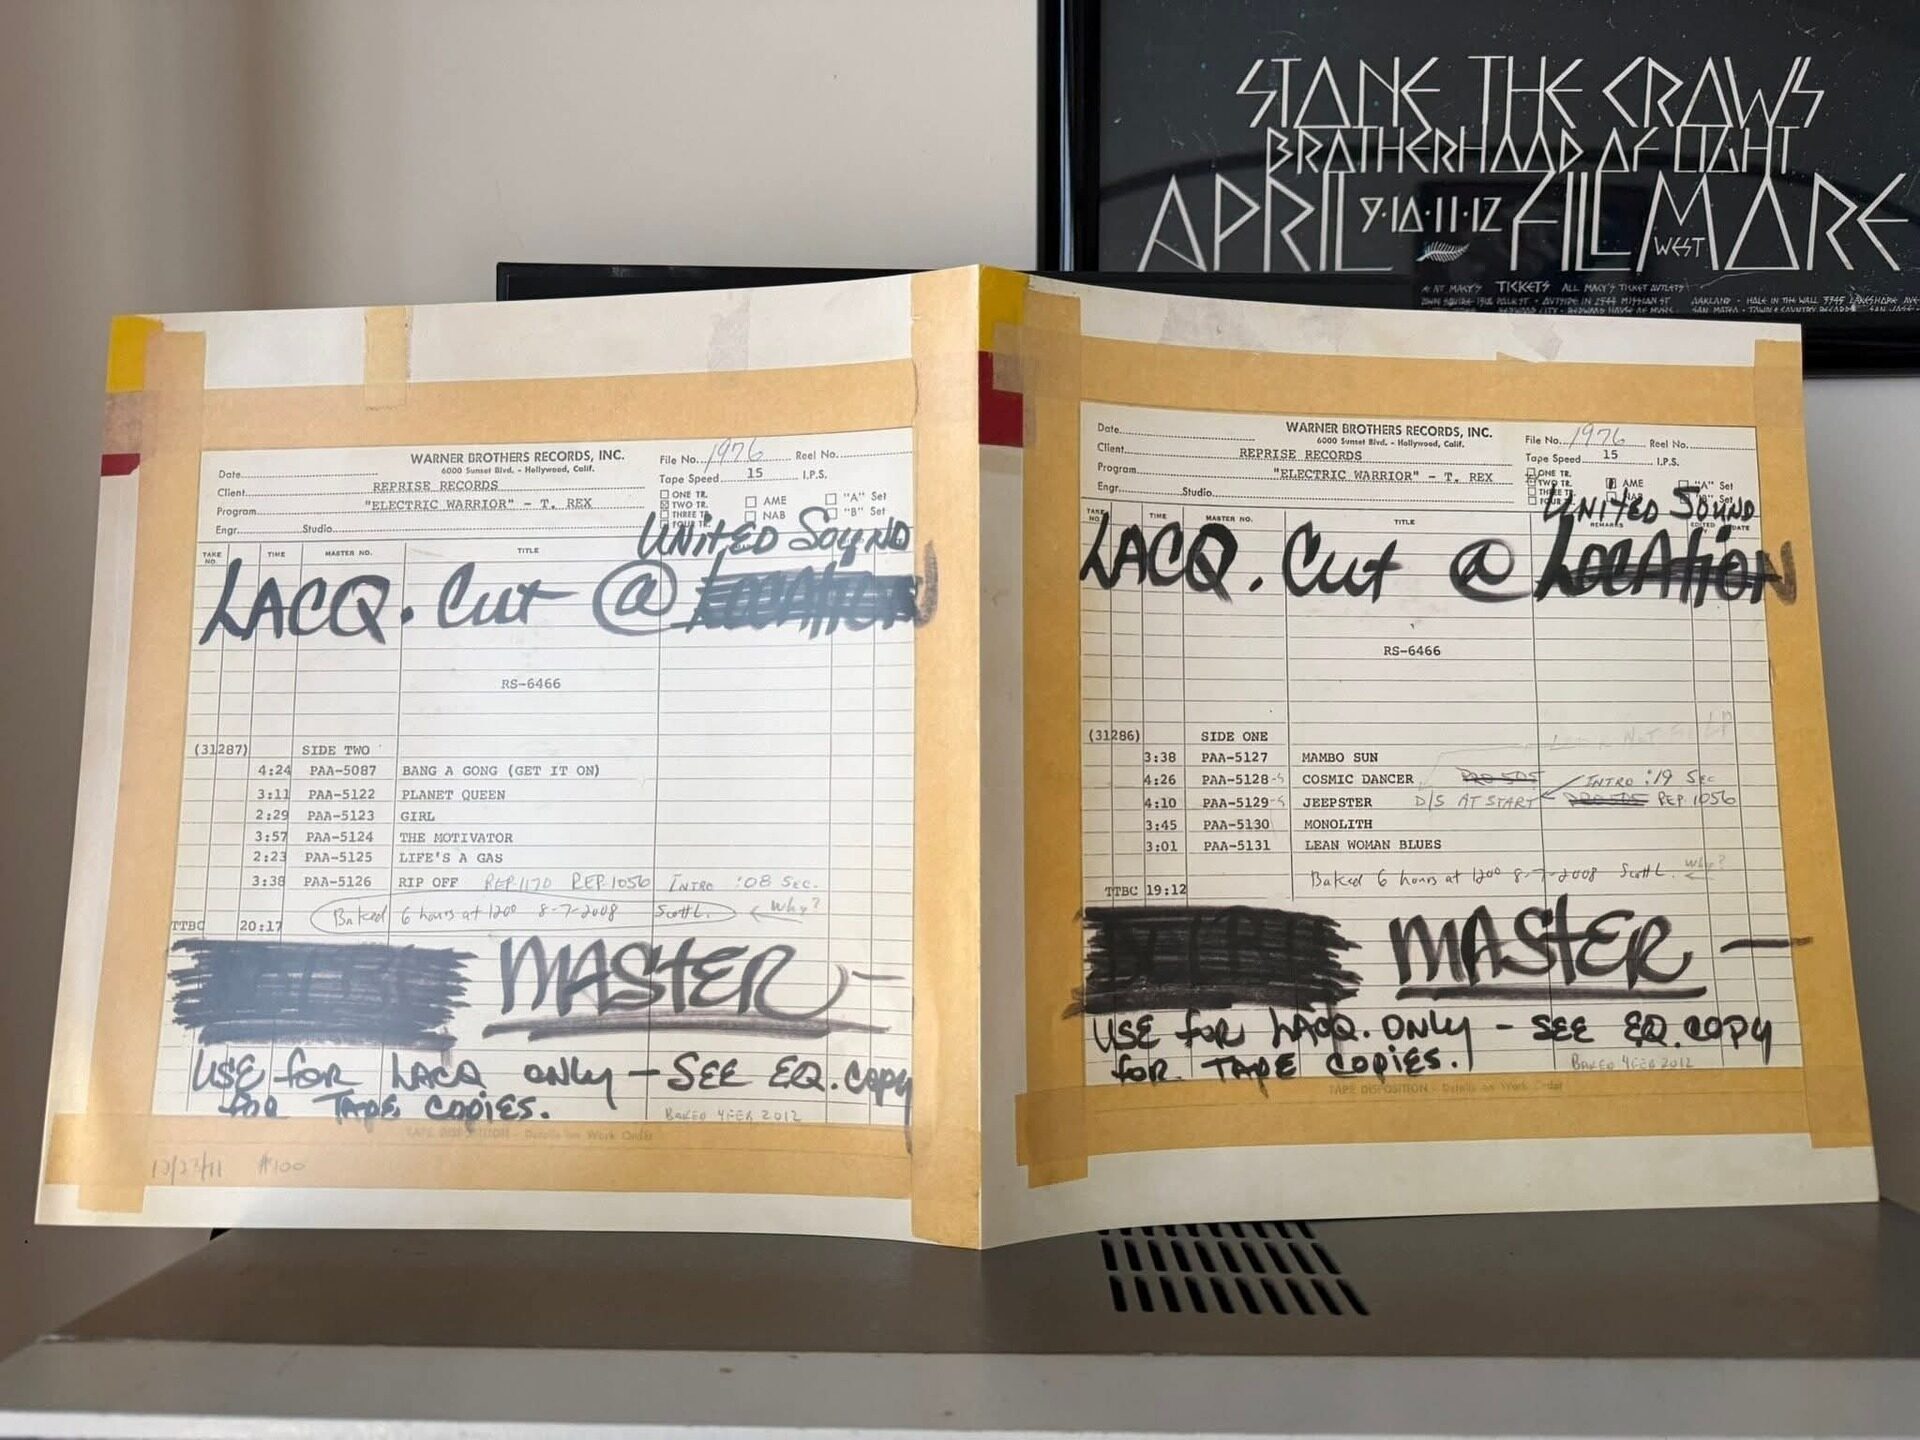 STANE THE CRAWS
BRATHERHAAD AF LIGHT
APRIL 9·10·11·12 FILLMARE
WEST
TICKETS ALL MACY'S TICKET AUTLETS
WARNER BROTHERS RECORDS, INC.
6000 Sunset Blvd. - Hollywood, Calif.
Date
File No. 1976 Reel No.
Client REPRISE RECORDS
Tape Speed 15 I.P.S.
Program "ELECTRIC WARRIOR" - T. REX
Engr. Studio
ONE TR.
TWO TR. AME "A" Set
THREE TR. NAB "B" Set
FOUR TR.
UNITED SOUND
TAKE NO. TIME MASTER NO. TITLE
LACQ. Cut @ LOCATION
RS-6466
(31287) SIDE TWO
4:24 PAA-5087 BANG A GONG (GET IT ON)
3:11 PAA-5122 PLANET QUEEN
2:29 PAA-5123 GIRL
3:57 PAA-5124 THE MOTIVATOR
2:23 PAA-5125 LIFE'S A GAS
3:38 PAA-5126 RIP OFF REP.1170 REP.1056 INTRO :08 SEC.
Baked 6 hours at 1200 8-7-2008 Scott L. Why?
TTBC 20:17
MASTER —
USE for LACQ ONLY — SEE EQ. COPY
for TAPE COPIES.
BAKED 4FEB 2012
TAPE DISPOSITION - Details on Work Order
12/23/11 #100
WARNER BROTHERS RECORDS, INC.
6000 Sunset Blvd. - Hollywood, Calif.
Date
File No. 1976 Reel No.
Client REPRISE RECORDS
Tape Speed 15 I.P.S.
Program "ELECTRIC WARRIOR" - T. REX
Engr. Studio
ONE TR.
TWO TR. AME "A" Set
THREE TR. NAB Set
FOUR TR.
UNITED SOUND
TAKE NO. TIME MASTER NO. TITLE REMARKS EDITED DATE
LACQ. Cut @ LOCATION
RS-6466
(31286) SIDE ONE
3:38 PAA-5127 MAMBO SUN
4:26 PAA-5128-S COSMIC DANCER PRO 505 INTRO :19 SEC
4:10 PAA-5129-S JEEPSTER D/S AT START PRO 505 REP.1056
3:45 PAA-5130 MONOLITH
3:01 PAA-5131 LEAN WOMAN BLUES
Baked 6 hours at 1200 8-7-2008 Scott L. Why?
TTBC 19:12
MASTER —
USE for LACQ. ONLY — SEE EQ. COPY
for TAPE COPIES.
BAKED 4FEB 2012
TAPE DISPOSITION - Details on Work Order